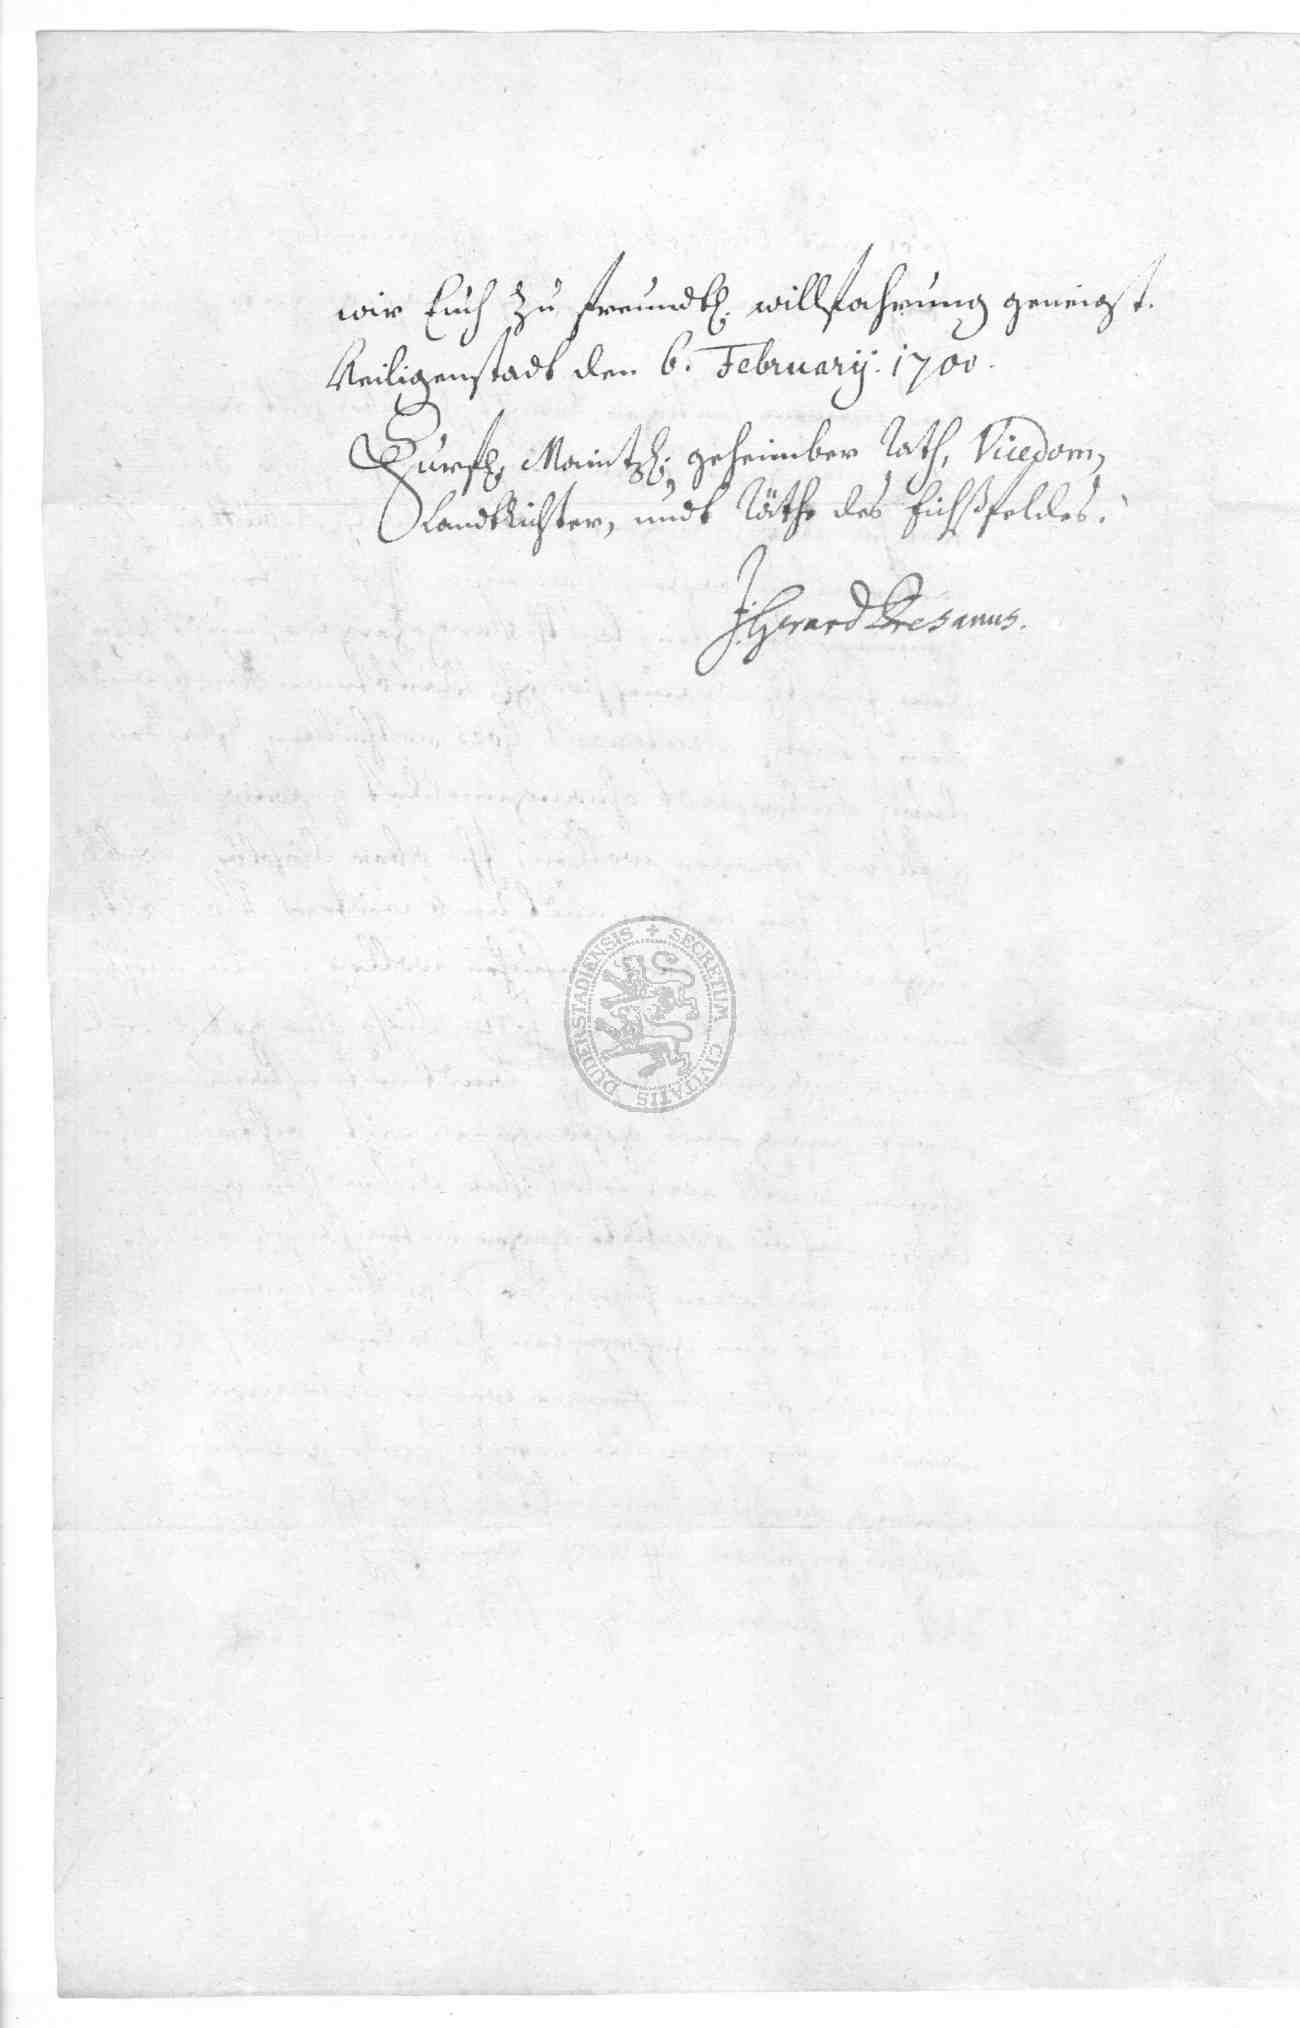 wir Euch zu freundtl. willfahrung geneigt.
Heiligenstadt den 6. February. 1700.
Churfl. Maintzl. geheimber Rath, Vicedom,
Landtrichter, undt Räthe des Eichßfeldes.
J. Gerard Bresanus.
SECRETUM CIVITATIS DUDERSTADIENSIS